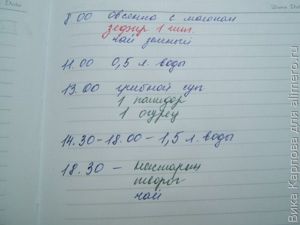 8 00 овсянка с молоком
зефир 1 шт.
чай зеленый
11.00 0,5 л. воды
13.00 грибной суп
1 помидор
1 огурец
14.30-18.00 - 1,5 л. воды
18.30 - нектарин
творог
чай
Вика Карлова для allmero.ru